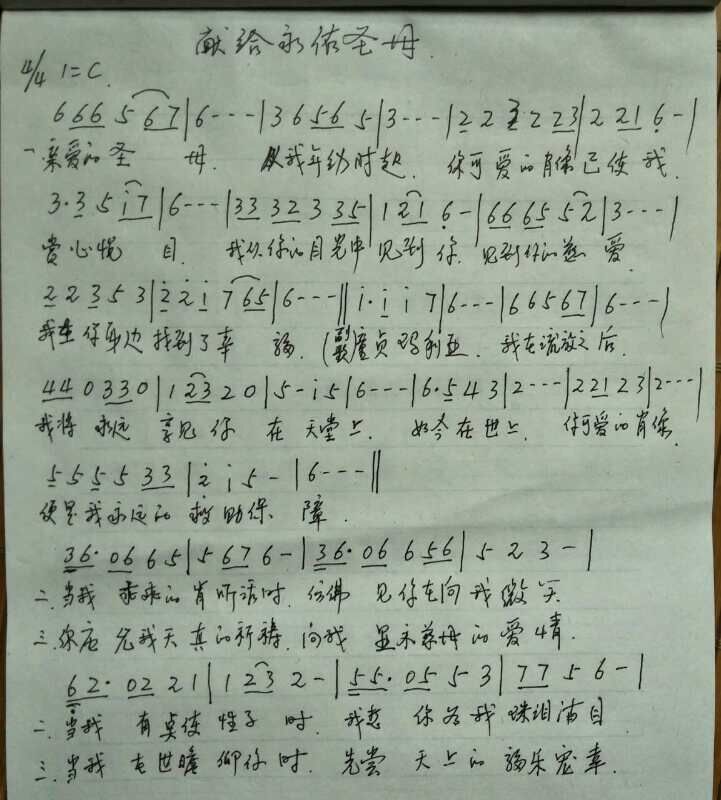 献给永佑圣母
4/4 1=C
6 6 6 5 6 7 | 6 - - - | 3 6 5 6 5 | 3 - - - | 2 2 3 2 2 3 | 2 2 1 6 - |
一.亲爱的圣 母. 从我年幼时起. 你可爱的肖像已使我.
3 · 3 5 i 7 | 6 - - - | 3 3 3 2 3 3 5 | 1 2 1 6 - | 6 6 6 5 5 2 | 3 - - - |
赏心悦 目. 我从你的目光中 见到 你. 见到你的慈 爱
2 2 3 5 3 | 2 2 i 7 6 5 | 6 - - - || i · i i 7 | 6 - - - | 6 6 5 6 7 | 6 - - - |
我在你身边找到了幸 福. ( 童贞玛利亚. 我在流放之后.
4 4 0 3 3 0 | 1 2 3 2 0 | 5 - i 5 | 6 - - - | 6 · 5 4 3 | 2 - - - | 2 2 1 2 3 | 2 - - - |
我将 永远 享见你 在 天堂上. 如今在世上. 你可爱的肖像.
5 5 5 5 3 3 | 2 i 5 - | 6 - - - ||
便是我永远的救助保 障.
3 6 · 0 6 6 5 | 5 6 7 6 - | 3 6 · 0 6 6 5 6 | 5 2 3 - |
二.当我 乖乖的肯听话时. 仿佛 见你在向我微笑
三.你应 允我天真的祈祷. 向我 显示慈母的爱情.
6 2 · 0 2 2 1 | 1 2 3 2 - | 5 5 · 0 5 5 3 | 7 7 5 6 - |
二.当我 有点使性子时. 我惹 你为我珠泪满目
三.当我 在世瞻仰你时. 先尝 天上的福乐宠幸.